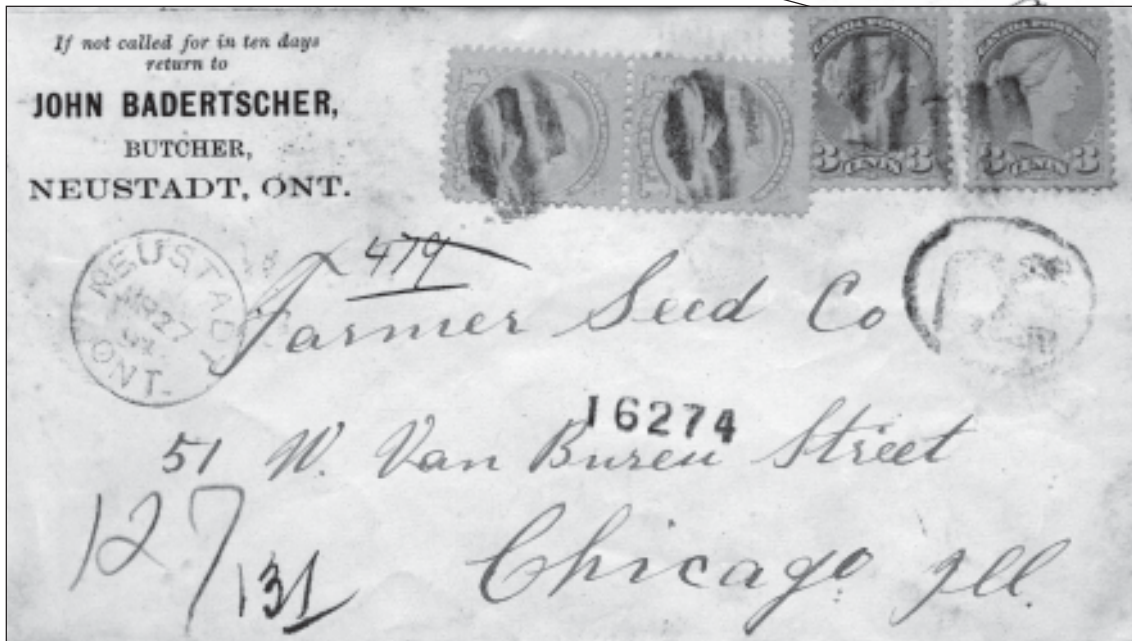 If not called for in ten days
return to
JOHN BADERTSCHER,
BUTCHER,
NEUSTADT, ONT.
CANADA POSTAGE
3 CENTS 3
CANADA POSTAGE
3 CENTS 3
NEUSTADT
27
ONT.
R
479
Farmer Seed Co
16274
51 W. Van Buren Street
Chicago Ill.
127
131